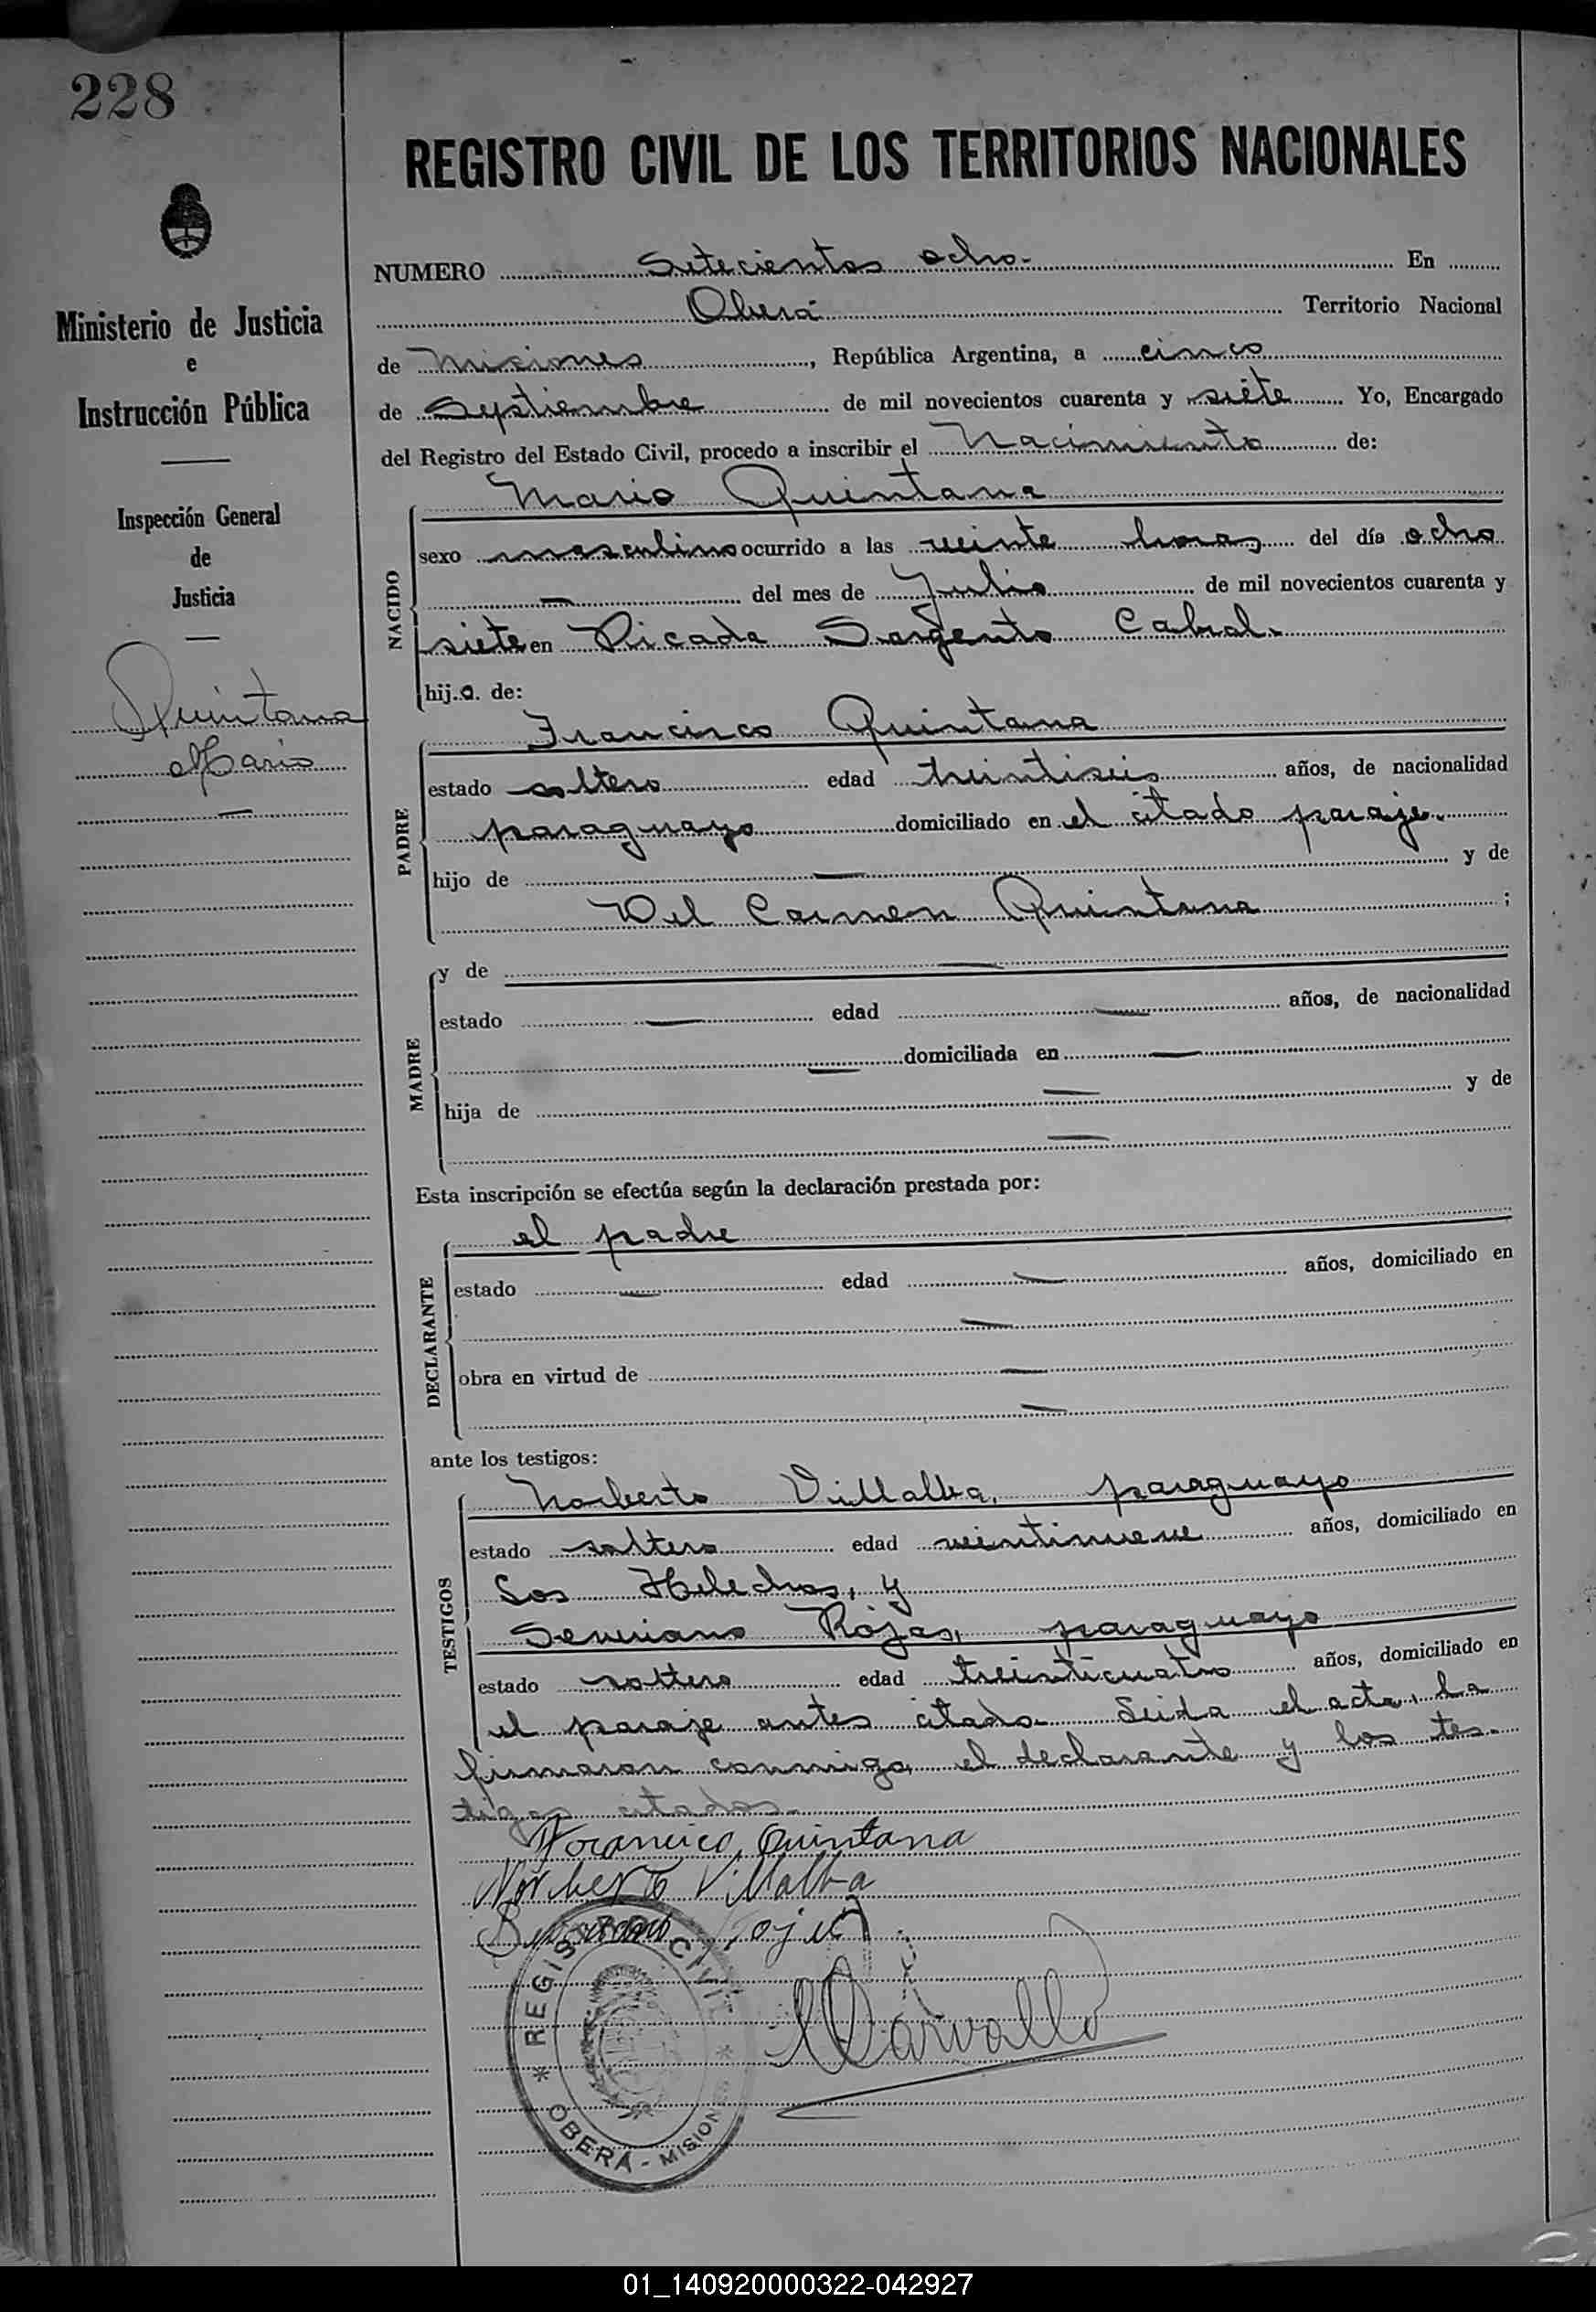 228
REGISTRO CIVIL DE LOS TERRITORIOS NACIONALES
Ministerio de Justicia
e
Instrucción Pública
Inspección General
de
Justicia
Quintana
Mario
NUMERO Setecientos ocho.- En
Oberá Territorio Nacional
de Misiones, República Argentina, a cinco
de Septiembre de mil novecientos cuarenta y siete Yo, Encargado
del Registro del Estado Civil, procedo a inscribir el Nacimiento de:
NACIDO
Mario Quintana
sexo masculino ocurrido a las veinte horas del día ocho
— del mes de Julio de mil novecientos cuarenta y
siete en Picada Sargento Cabral.
hijo de:
PADRE
Francisco Quintana
estado soltero edad treintiseis años, de nacionalidad
paraguayo domiciliado en el citado paraje.
hijo de — y de
Del Carmen Quintana ;
MADRE
y de —
estado — edad — años, de nacionalidad
— domiciliada en —
hija de — y de
—
Esta inscripción se efectúa según la declaración prestada por:
DECLARANTE
el padre
estado — edad — años, domiciliado en
—
obra en virtud de —
—
ante los testigos:
TESTIGOS
Norberto Villalba, paraguayo
estado soltero edad veintinueve años, domiciliado en
Los Helechos, y
Severiano Rojas, paraguayo
estado soltero edad treinticuatro años, domiciliado en
el paraje antes citado. Leida el acta, la
firmaron conmigo, el declarante y los tes-
tigos citados.
Francico Quintana
Norberto Villalba
Rojas
Carvallo
REGISTRO CIVIL
* OBERÁ - MISIONES *
01_140920000322-042927